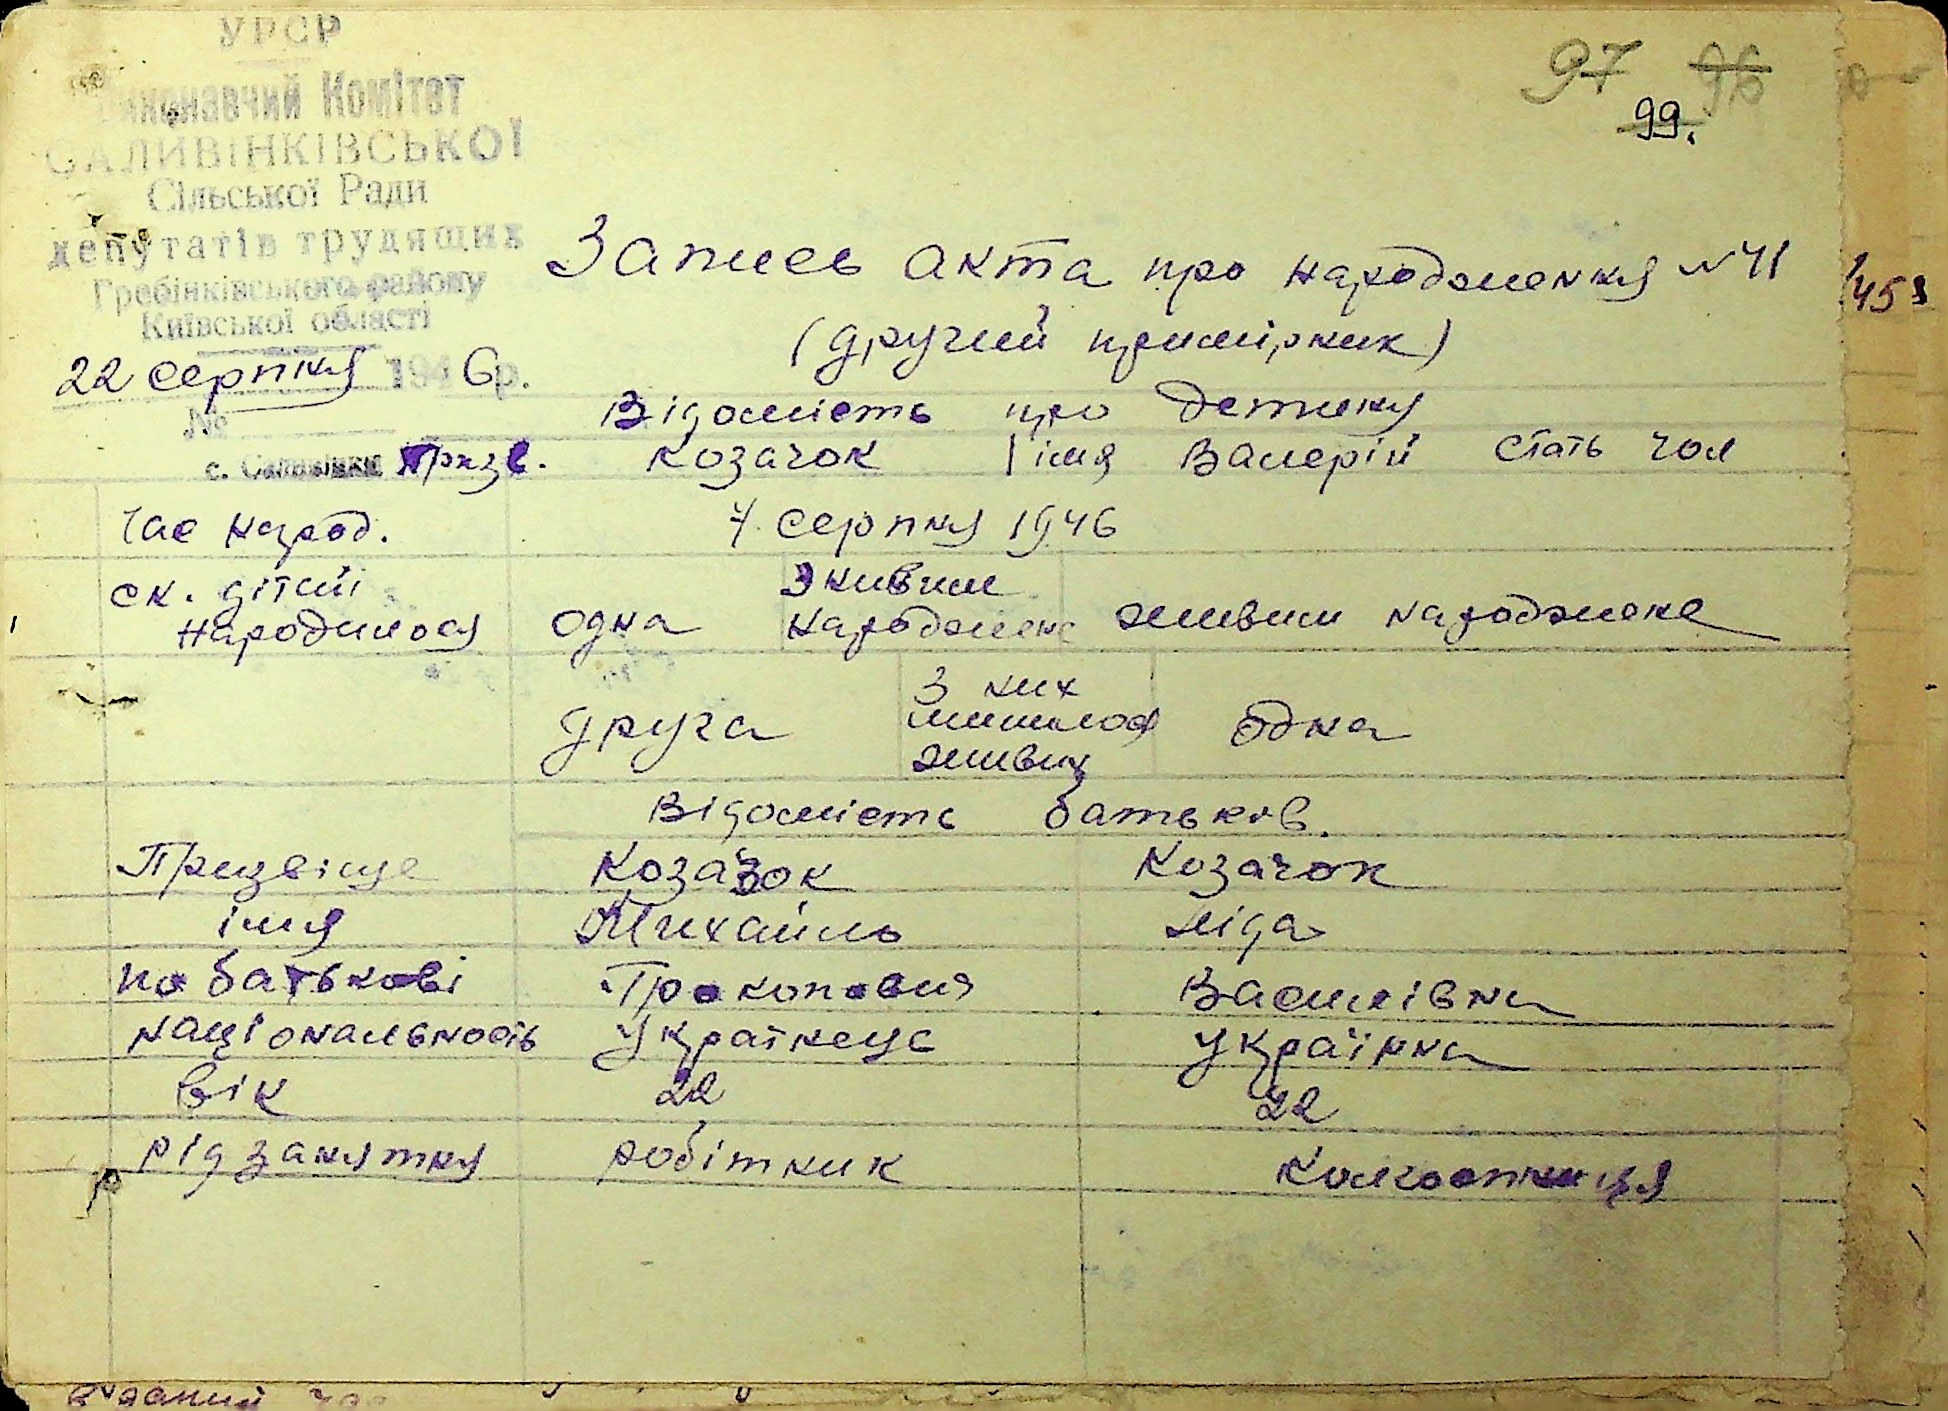 УРСР
Виконавчий Комітет
САЛИВІНКІВСЬКОЇ
Сільської Ради
депутатів трудящих
Гребінківського району
Київської області
22 серпня 1946р.
№
с. Саливінки
97 96
99.
Запись акта про народження №41
(другий примірник)
Відомість про дитину
Призв. Козачок імя Валерій стать чол
час народ. 7 серпня 1946
ск. дітий народилося одна живим народжене живим народжене
друга з них лишилося живих одна
Відомість батьків.
Призвіще Козачок Козачок
імя Михайль Ліда
по батькові Прокопович Василівна
національность Українець Українка
вік 22 22
рід занятия робітник колгоспниця